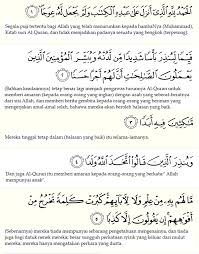 ٱلْحَمْدُ لِلَّهِ ٱلَّذِىٓ أَنزَلَ عَلَىٰ عَبْدِهِ ٱلْكِتَٰبَ وَلَمْ يَجْعَل لَّهُۥ عِوَجَا ۜ ١
Segala puji tertentu bagi Allah yang telah menurunkan kepada hambaNya (Muhammad),
Kitab suci Al-Quran, dan tidak menjadikan padanya sesuatu yang bengkok (terpesong):
قَيِّمًا لِّيُنذِرَ بَأْسًا شَدِيدًا مِّن لَّدُنْهُ وَيُبَشِّرَ ٱلْمُؤْمِنِينَ ٱلَّذِينَ
يَعْمَلُونَ ٱلصَّٰلِحَٰتِ أَنَّ لَهُمْ أَجْرًا حَسَنًا ٢
(Bahkan keadaannya) tetap benar lagi menjadi pengawas turunnya Al-Quran untuk
memberi amaran (kepada orang-orang yang ingkar) dengan azab yang seberat-beratnya
dari sisi Allah, dan memberi berita gembira kepada orang-orang yang beriman yang
mengerjakan amal-amal soleh, bahawa mereka akan beroleh balasan yang baik.
مَّٰكِثِينَ فِيهِ أَبَدًا ٣
Mereka tinggal tetap dalam (balasan yang baik) itu selama-lamanya.
وَيُنذِرَ ٱلَّذِينَ قَالُوا۟ ٱتَّخَذَ ٱللَّهُ وَلَدًا ٤
Dan juga Al-Quran itu memberi amaran kepada orang-orang yang berkata: "Allah
mempunyai anak".
مَّا لَهُم بِهِۦ مِنْ عِلْمٍ وَلَا لِءَابَآئِهِمْ ۚ كَبُرَتْ كَلِمَةً تَخْرُجُ مِنْ
أَفْوَٰهِهِمْ ۚ إِن يَقُولُونَ إِلَّا كَذِبًا ٥
(Sebenarnya) mereka tiada mempunyai sebarang pengetahuan mengenainya, dan tiada
juga bagi datuk nenek mereka; besar sungguh perkataan syirik yang keluar dari mulut
mereka; mereka hanya mengatakan perkara yang dusta.